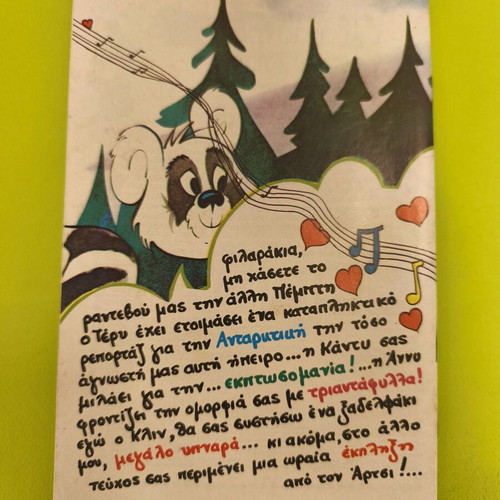 φιλαράκια,
μη χάσετε το
ραντεβού μας την άλλη Πέμπτη
ο Τέρυ έχει ετοιμάσει ένα καταπληκτικό
ρεπορτάζ για την Ανταρκτική την τόσο
άγνωστή μας αυτή ήπειρο... η Κάντυ σας
μιλάει για την... εκπτωσομανία!... η Άννυ
φροντίζει την ομορφιά σας με τριαντάφυλλα!
εγώ ο Κλιν, θα σας συστήσω ένα ξαδελφάκι
μου, μεγάλο υπναρά... κι ακόμα, στο άλλο
τεύχος σας περιμένει μια ωραία έκπληξη
από τον Άρτσι!...